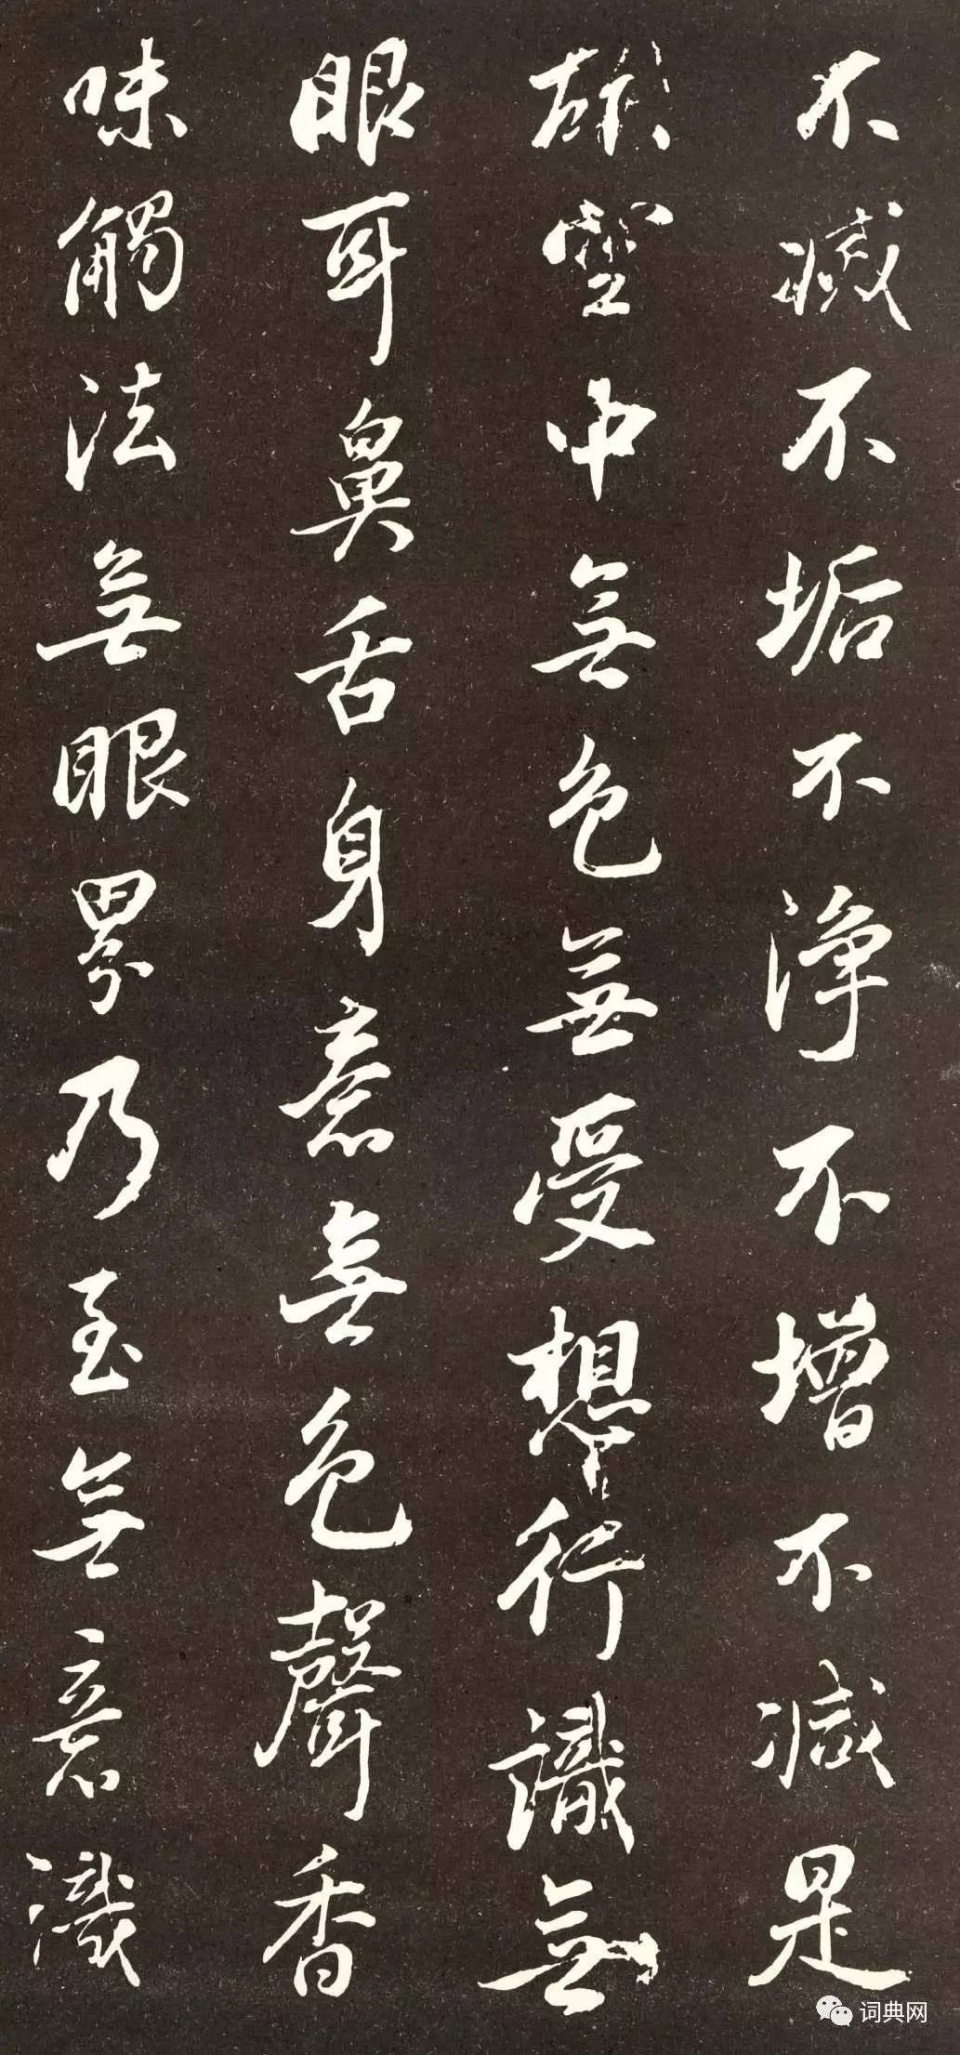 不滅不垢不淨不增不減是
故空中無色無受想行識無
眼耳鼻舌身意無色聲香
味觸法無眼界乃至無意識
词典网